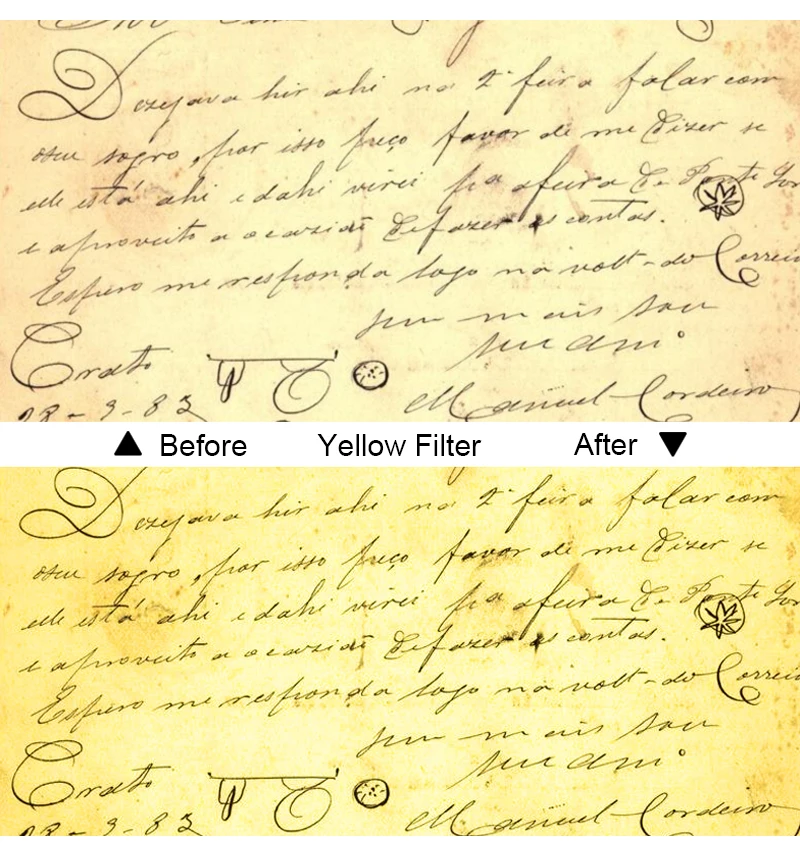 Dezejava hir ahi na 2ª feira falar com
oseu sogro, por isso peço favor de me dizer se
elle está ahi e dahi virei pª afeira de Ponte
e aproveito a ocazião defazer as contas.
Espero me responda logo na volt-do Correio
sem mais sou
seu
Crato
Manuel Cordeiro
▲ Before Yellow Filter After ▼
Dezejava hir ahi na 2ª feira falar com
oseu sogro, por isso peço favor de me dizer se
elle está ahi e dahi virei pª afeira de Ponte
e aproveito a ocazião defazer as contas.
Espero me responda logo na volt-do Correio
sem mais sou
seu
Crato
Manuel Cordeiro